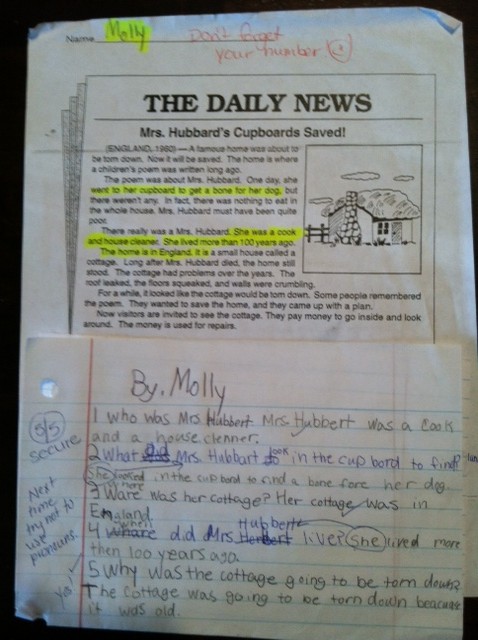 Name Molly
Don't forget
your number
THE DAILY NEWS
Mrs. Hubbard's Cupboards Saved!
(ENGLAND, 1980) — A famous home was about to
be torn down. Now it will be saved. The home is where
a children's poem was written long ago.
The poem was about Mrs. Hubbard. One day, she
went to her cupboard to get a bone for her dog, but
there weren't any. In fact, there was nothing to eat in
the whole house. Mrs. Hubbard must have been quite
poor.
There really was a Mrs. Hubbard. She was a cook
and house cleaner. She lived more than 100 years ago.
The home is in England. It is a small house called a
cottage. Long after Mrs. Hubbard died, the home still
stood. The cottage had problems over the years. The
roof leaked, the floors squeaked, and walls were crumbling.
For a while, it looked like the cottage would be torn down. Some people remembered
the poem. They wanted to save the home, and they came up with a plan.
Now visitors are invited to see the cottage. They pay money to go inside and look
around. The money is used for repairs.
By, Molly
5/5
secure
Next
time,
try not to
use
pronouns.
Yes!
1 who was Mrs Hubbert Mrs Hubbert was a cook
and a house clenner.
2 What did Mrs Hubbart look in the cup bord to find?
She looked in the cup bord to find a bone fore her dog.
3 Ware was her cottage? Her cottage was in
England
4 when did Mrs Hubbert live? She lived more
then 100 years ago.
5 Why was the cottage going to be torn down?
The cottage was going to be torn down beacause
it was old.